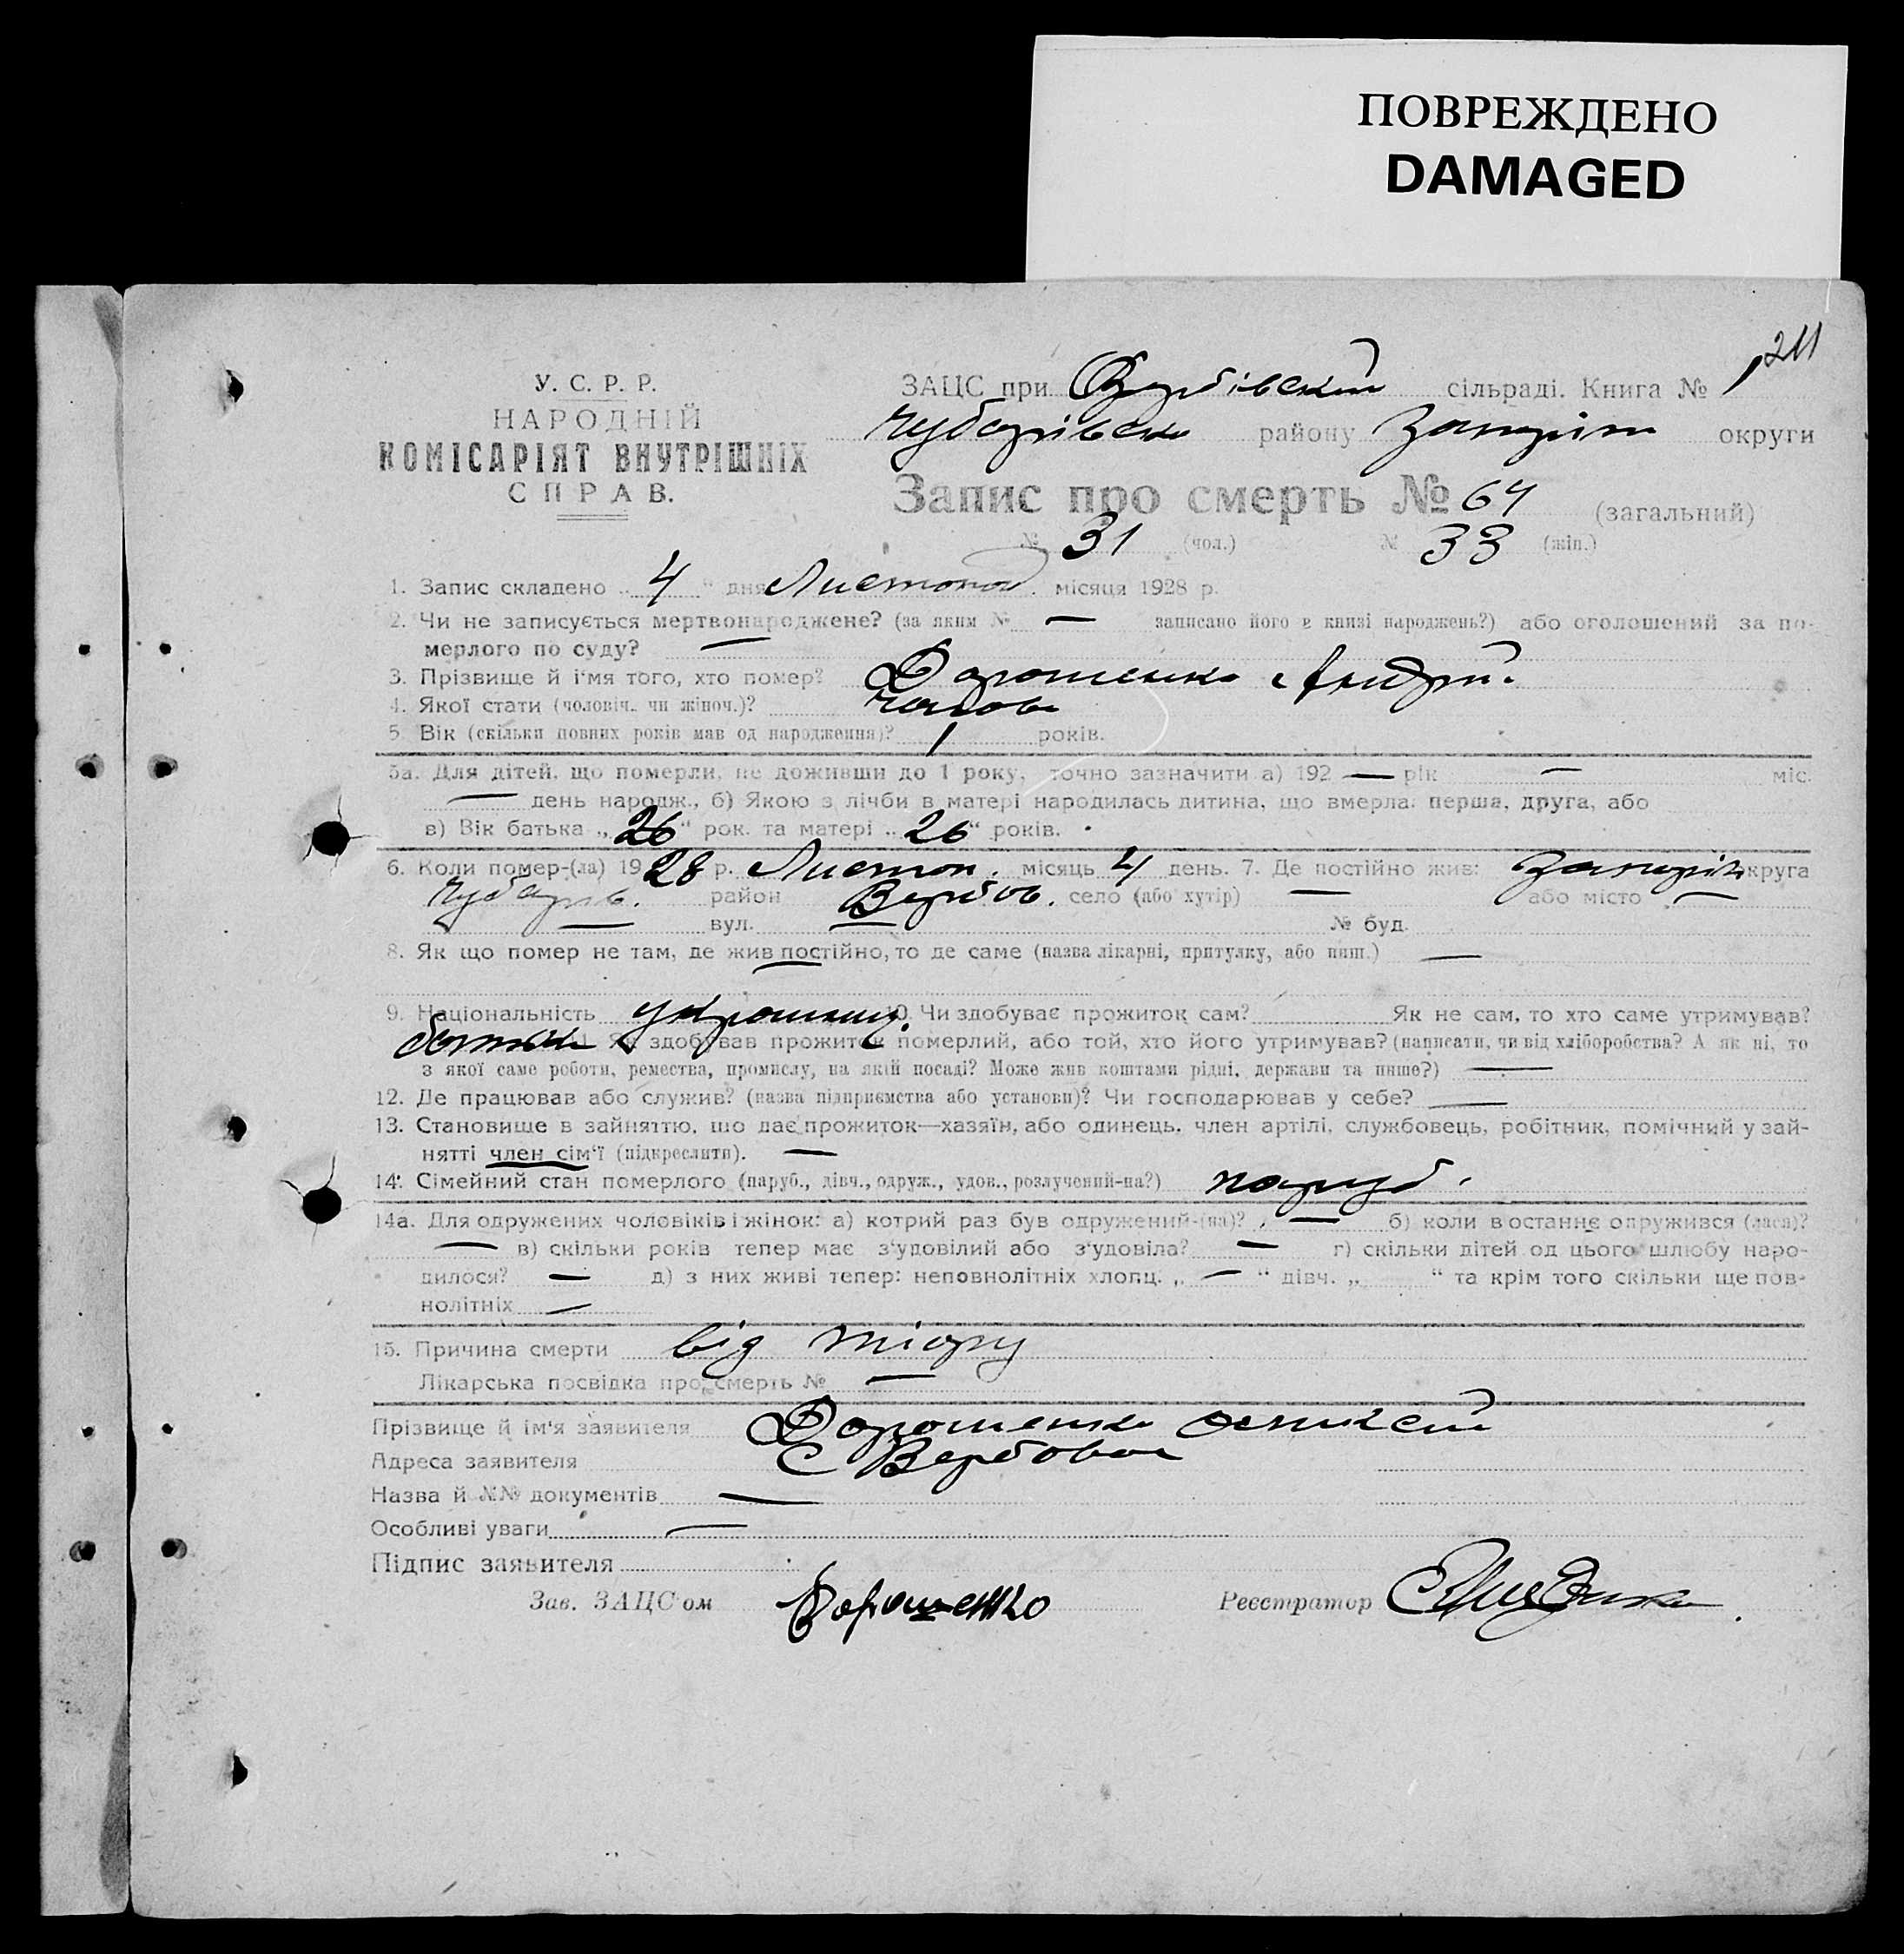 ПОВРЕЖДЕНО
DAMAGED
211
У. С. Р. Р.
НАРОДНІЙ
КОМІСАРІЯТ ВНУТРІШНІХ
СПРАВ.
ЗАЦС при Вербівській сільраді. Книга № 1
Чубарівськ району Запоріж округи
Запис про смерть № 64 (загальний)
№ 31 (чол.) № 33 (жін.)
1. Запис складено „ 4 “ дня Листопад. місяця 1928 р.
2. Чи не записується мертвонароджене? (за яким № — записано його в книзі народжень?) або оголошений за по-
мерлого по суду? —
3. Прізвище й і'мя того, хто помер? Дорошенко Андрій.
4. Якої стати (чоловіч. чи жіноч.)? чолов
5. Вік (скільки повних років мав од народження)? 1 років.
5а. Для дітей, що померли, не доживши до 1 року, точно зазначити а) 192 — рік — міс.
— день народж., б) Якою з лічби в матері народилась дитина, що вмерла: перша, друга, або
в) Вік батька „ 26 “ рок. та матері „ 26 “ років.
6. Коли помер-(ла) 1928 р. Листоп. місяць 4 день. 7. Де постійно жив: Запоріж округа
Чубарів. район Вербов. село (або хутір) — або місто —
— вул. — № буд.
8. Як що помер не там, де жив постійно, то де саме (назва лікарні, притулку, або инш.) —
9. Національність українец. 10. Чи здобуває прожиток сам? Як не сам, то хто саме утримував?
батько 11. Як здобував прожиток померлий, або той, хто його утримував? (написати, чи від хліборобства? А як ні, то
з якої саме роботи, ремества, промислу, на якій посаді? Може жив коштами рідні, держави та инше?) —
12. Де працював або служив? (назва підприємства або установи)? Чи господарював у себе? —
13. Становище в зайняттю, що дає прожиток—хазяїн, або одинець, член артілі, службовець, робітник, помічний у зай-
нятті член сім'ї (підкреслити). —
14. Сімейний стан померлого (паруб., дівч., одруж., удов., розлучений-на?) паруб.
14а. Для одружених чоловіків і жінок: а) котрий раз був одружений-(на)? — б) коли в останнє одружився (лася)?
— в) скільки років тепер має з'удовілий або з'удовіла? — г) скільки дітей од цього шлюбу наро-
дилося? — д) з них живі тепер: неповнолітніх хлопц. „ — “ дівч. „ “ та крім того скільки ще пов-
нолітніх —
15. Причина смерти від
Лікарська посвідка про смерть № —
Прізвище й ім'я заявителя Дорошенко
Адреса заявителя С Вербове
Назва й №№ документів —
Особливі уваги —
Підпис заявителя
Зав. ЗАЦС'ом Дорошенко Реєстратор